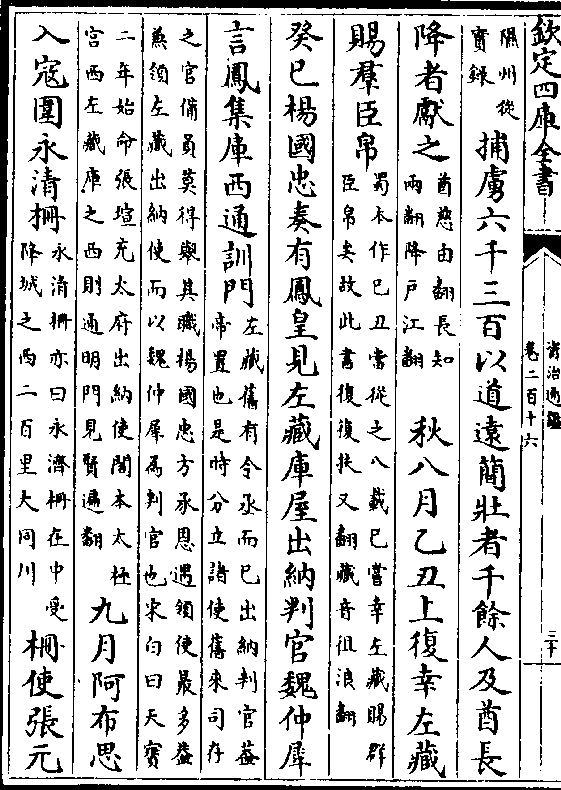 欽定四庫全書
資治通鑑
卷二百十六
三十
隰州從
實錄
捕虜六千三百以道遠簡壯者千餘人及酋長
降者獻之
酋慈由翻長知
兩翻降戸江翻
秋八月乙丑上復幸左藏
賜羣臣帛
蜀本作己丑當從之八載已嘗幸左藏賜群
臣帛矣故此書復復扶又翻藏音徂浪翻
癸巳楊國忠奏有鳳皇見左藏庫屋出納判官魏仲犀
言鳳集庫西通訓門
左藏舊有令丞而已出納判官蓋
帝置也是時分立諸使舊來司存
之官備員莫得舉其職楊國忠方承恩遇領使最多蓋
兼領左藏出納使而以魏仲犀為判官也宋白曰天寶
二年始命張瑄充太府出納使閣本太極
宮西左藏庫之西則通明門見賢遍翻
九月阿布思
入寇圍永清柵
永清柵亦曰永濟柵在中受
降城之西二百里大同川
柵使張元